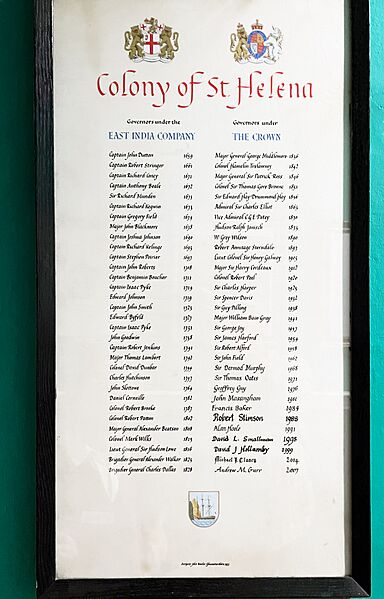 Colony of St Helena
Governors under the
EAST INDIA COMPANY
Captain John Dutton 1659
Captain Robert Stringer 1661
Captain Richard Coney 1671
Captain Anthony Beale 1672
Sir Richard Munden 1673
Captain Richard Keigwin 1673
Captain Gregory Field 1673
Major John Blackmore 1678
Captain Joshua Johnson 1690
Captain Richard Kelinge 1693
Captain Stephen Poirier 1697
Captain John Roberts 1708
Captain Benjamin Boucher 1711
Captain Isaac Pyke 1714
Edward Johnson 1719
Captain John Smith 1723
Edward Byfeld 1727
Captain Isaac Pyke 1731
John Goodwin 1738
Captain Robert Jenkins 1741
Major Thomas Lambert 1742
Colonel David Dunbar 1744
Charles Hutchinson 1747
John Skottowe 1764
Daniel Corneille 1782
Colonel Robert Brooke 1787
Colonel Robert Patton 1802
Major General Alexander Beatson 1808
Colonel Mark Wilks 1813
Lieut General Sir Hudson Lowe 1816
Brigadier General Alexander Walker 1823
Brigadier General Charles Dallas 1828
Governors under
THE CROWN
Major General George Middlemore 1836
Colonel Hamelin Trelawney 1842
Major General Sir Patrick Ross 1846
Colonel Sir Thomas Gore Browne 1851
Sir Edward Hay Drummond Hay 1856
Admiral Sir Charles Elliot 1863
Vice Admiral C G E Patey 1870
Hudson Ralph Janisch 1873
W Grey Wilson 1890
Robert Armitage Sterndale 1897
Lieut Colonel Sir Henry Galwey 1903
Major Sir Harry Cordeaux 1912
Colonel Robert Peel 1920
Sir Charles Harper 1925
Sir Spencer Davis 1932
Sir Guy Pilling 1938
Major William Bain Gray 1941
Sir George Joy 1947
Sir James Harford 1954
Sir Robert Alford 1958
Sir John Field 1962
Sir Dermod Murphy 1968
Sir Thomas Oates 1971
Geoffrey Guy 1976
John Massingham 1981
Francis Baker 1984
Robert Stimson 1988
Alan Hoole 1991
David L. Smallman 1995
David J Hollamby 1999
Michael R Clancy 2004
Andrew M. Gurr 2007